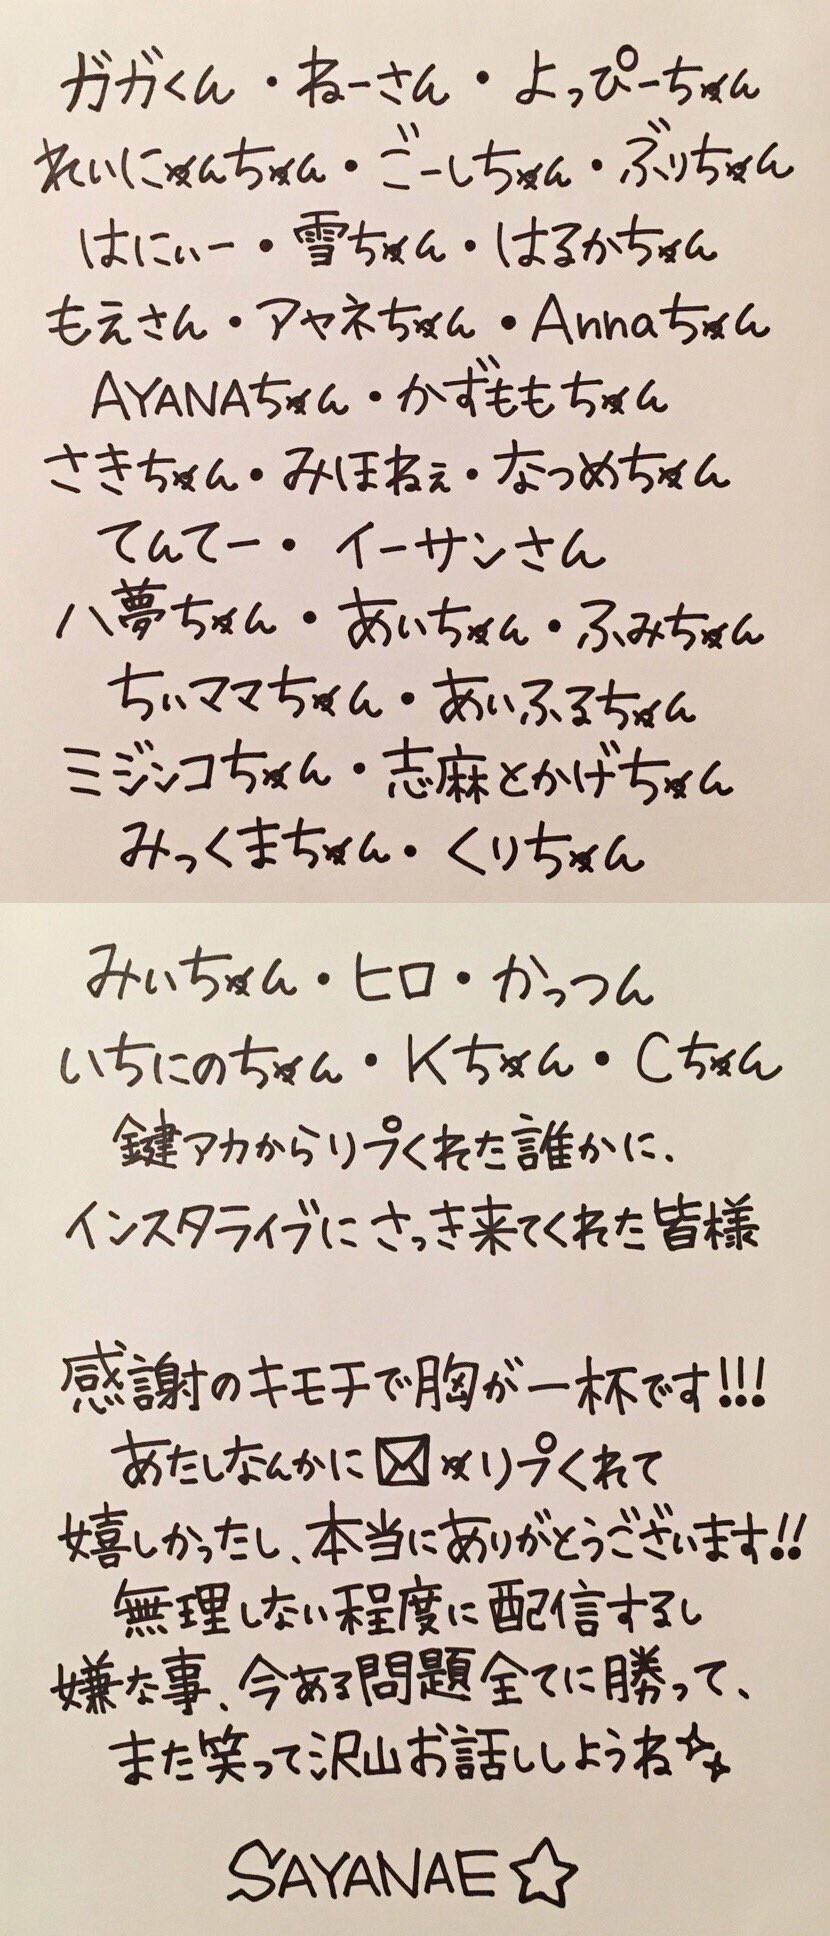 ガガくん・ねーさん・よっぴーちゃん
れいにゃんちゃん・ごーしちゃん・ぶりちゃん
はにぃー・雪ちゃん・はるかちゃん
もえさん・アヤネちゃん・Annaちゃん
AYANAちゃん・かずももちゃん
さきちゃん・みほねぇ・なつめちゃん
てんてー・イーサンさん
八夢ちゃん・あいちゃん・ふみちゃん
ちぃママちゃん・あいふるちゃん
ミジンコちゃん・志麻とかげちゃん
みっくまちゃん・くりちゃん
みぃちゃん・ヒロ・かっつん
いちにのちゃん・Kちゃん・Cちゃん
鍵アカからリプくれた誰かに、
インスタライブにさっき来てくれた皆様
感謝のキモチで胸が一杯です!!!
あたしなんかに✉やリプくれて
嬉しかったし、本当にありがとうございます!!
無理しない程度に配信するし
嫌な事、今ある問題全てに勝って、
また笑って沢山お話ししようね✨
SAYANAE☆